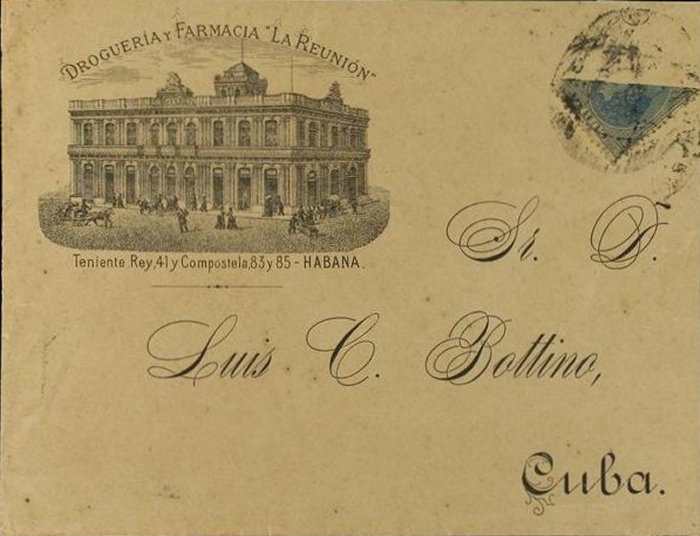 DROGUERÍA Y FARMACIA "LA REUNIÓN"
Teniente Rey, 41 y Compostela, 83 y 85 - HABANA.
Sr. D.
Luis C. Bottino,
Cuba.